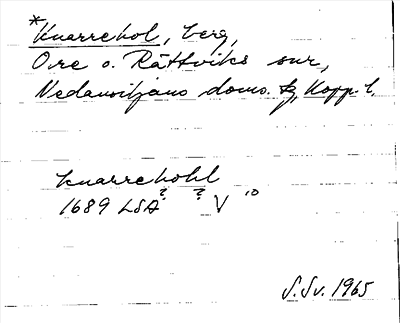 *Knarrekol, berg,
Ore o. Rättviks snr,
Nedansiljans doms. tg, Kopp. l.
Knarrekohl
1689 LSA ? ? V 10
S.Sv. 1965